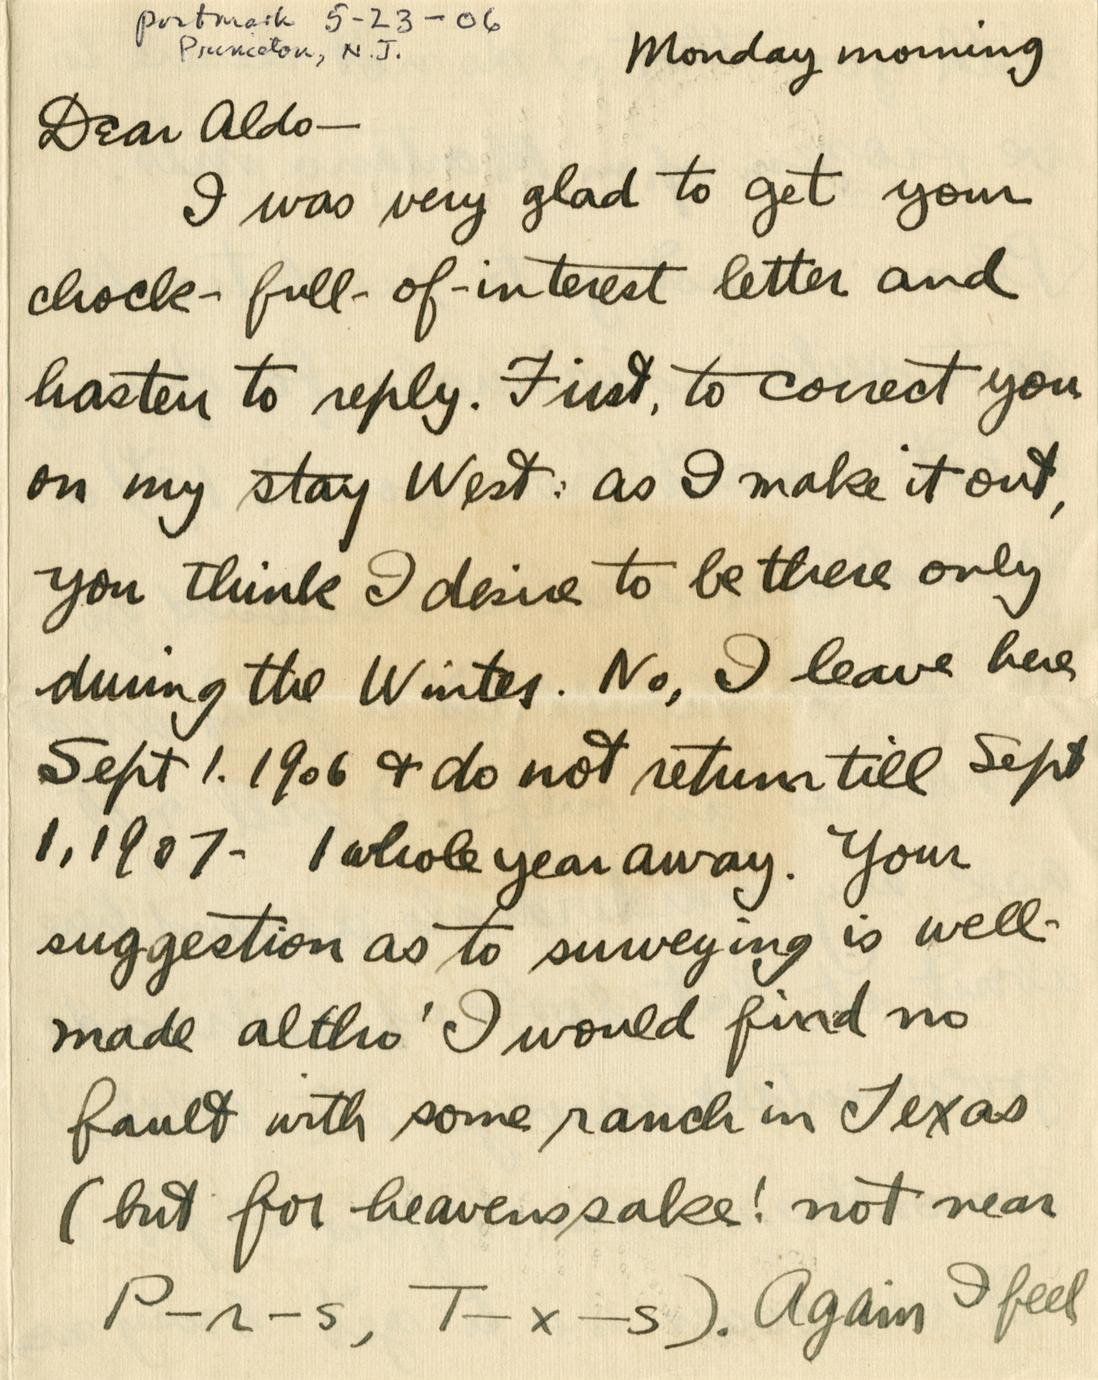 postmark 5-23-06
Princeton, N.J.
Monday morning
Dear Aldo—
I was very glad to get your
chock-full-of-interest letter and
hasten to reply. First, to correct you
on my stay West: as I make it out,
you think I desire to be there only
during the Winter. No, I leave here
Sept 1. 1906 & do not return till Sept
1, 1907- 1 whole year away. Your
suggestion as to surveying is well-
made altho' I would find no
fault with some ranch in Texas
(but for heavenssake! not near
P-r-s, T-x-s). Again I feel